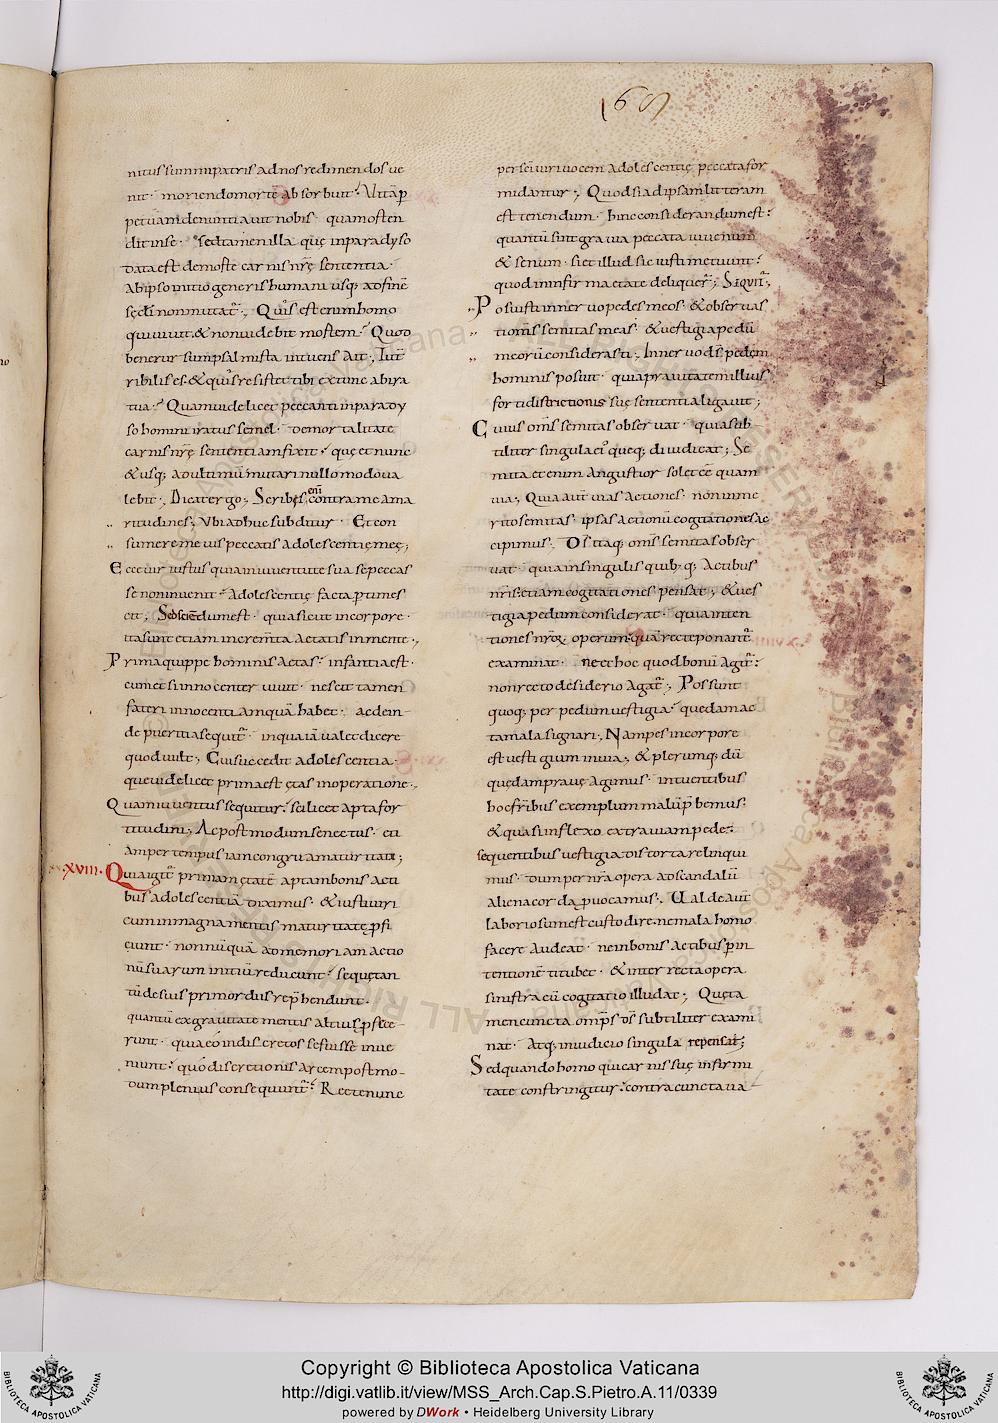 169
nitus summi patris ad nos redimendos ue
nit · moriendo morte absorbuit · Vitā p̄
petuam denuntiauit nobis · quam osten
dit in se · sed tamen illa quę in paradyso
data est de morte carnis nrę sententia ·
ab ipso initio generis humani usq; ad finē
sędi non mutat̄ ·, Quis est enim homo
qui uiuit & non uidebit mortem · Quod
bene rursum psalmista intuens ait ·, Tu t̄
ribilis es · & quis resistet tibi ex tunc ab ira
tua · Quamuidelicet peccanti in parady
so homini iratus semel · de mortalitate
carnis nrę sententiam fixit · quę et nunc
& usq; ad ultimū mutari nullomodo ua
lebit ·, Dicat ergo ·, Scribis enī contra me ama
ritudines ·, Vbi adhuc subditur · Et con
sumere me uis peccatis adolescentię meę ;
Ecce uir iustus quia in iuuentute sua se peccas
se non inuenit · adolescentię facta p̄times
cit ; Sed sciendum est · quia sicut in corpore ·
ita sunt etiam incrementa aetatis in mente ·,
Prima quippe hominis aetas · infantia est ·
cum etsi innocenter uiuit · nescit tamen
fateri innocentiam quā habet · ac dein
de pueritia sequit̄ · in qua iā ualet dicere
quod uult ·, Cui succedit adolescentia ·
quę uidelicet prima est ętas in operatione ·,
Quam iuuentus sequitur · scilicet apta for
titudini ·, Ac postmodum senectus · eti
am per tempus iam congrua maturitati ;
xviii · Quia igit̄ primam ętatē aptam bonis acti
bus adolescentiā diximus · & iusti uiri
cum in magna mentis maturitate p̄fi
ciunt · nonnūquā ad memoriam actio
nū suarum initiū reducunt · se quę tan
tū de suis primordiis rep̄hendunt ·
quantū ex grauitate mentis altius p̄fece
runt · quia eo indiscretos se fuisse inue
niunt · quo discretionis arcem postmo
dum plenius consequunt̄ · Recte nunc
per sc̄i uiri uocem adolescentię peccata for
midantur ·, Quod si ad ipsam litteram
est tenendum · hinc considerandum est ·
quantū sint grauia peccata iuuenum
& senum · si et illud sic iusti metuunt ·
quod in infirma etate deliquer̄ ·, SEQVIT̄ ;
Posuisti in neruo pedes meos · & obseruas
ti omīs semitas meas · & uestigia pedū
meorū considerasti ·, In neruo dš pedem
hominis posuit · quia prauitatem illius
forti districtionis suę sententia ligauit ;
Cuius omīs semitas obseruat · quia sub
tiliter singula ei' queq; diiudicat ; Se
mita etenim angustior solet eē quam
uia ·, Quia aut̄ uias actiones · non inme
rito semitas · ipsas actionū cogitationes ac
cipimus ·, Dš itaq; omīs semitas obser
uat · quia in singulis quibq; actibus
nris etiam cogitationes pensat ·, & ues
tigia pedum considerat · quia inten
tiones nrōx operum quā recte ponant̄
examinat · ne et hoc quod bonū agit̄ ·
non recto desiderio agat̄ ·, Possunt
quoq; per pedum uestigia · quędam ac
ta mala signari ·, Nam pes in corpore
est uestigium in uia ·, & plerumq; dū
quędam praue agimus · intuentibus
hoc fribus exemplum malū p̄bemus ·
& quasi inflexo extra uiam pede ·
sequentibus uestigia distorta relinqui
mus · dum per nrā opera ad scandalū
aliena corda p̄uocamus ·, Ualde aut̄
laboriosum est custodire · ne mala homo
facere audeat · ne in bonis actibus p̄ in
tentionē titubet · & inter recta opera
sinistra eū cogitatio illudat ·, Quę ta
men cuncta omp̄s dš subtiliter exami
nat · atq; in iudicio singula repensat ;
Sed quando homo qui carnis suę infirmi
tate constringitur · contra cuncta ua
Copyright © Biblioteca Apostolica Vaticana
http://digi.vatlib.it/view/MSS_Arch.Cap.S.Pietro.A.11/0339
powered by DWork • Heidelberg University Library
BIBLIOTECA APOSTOLICA VATICANA
BIBLIOTECA APOSTOLICA VATICANA